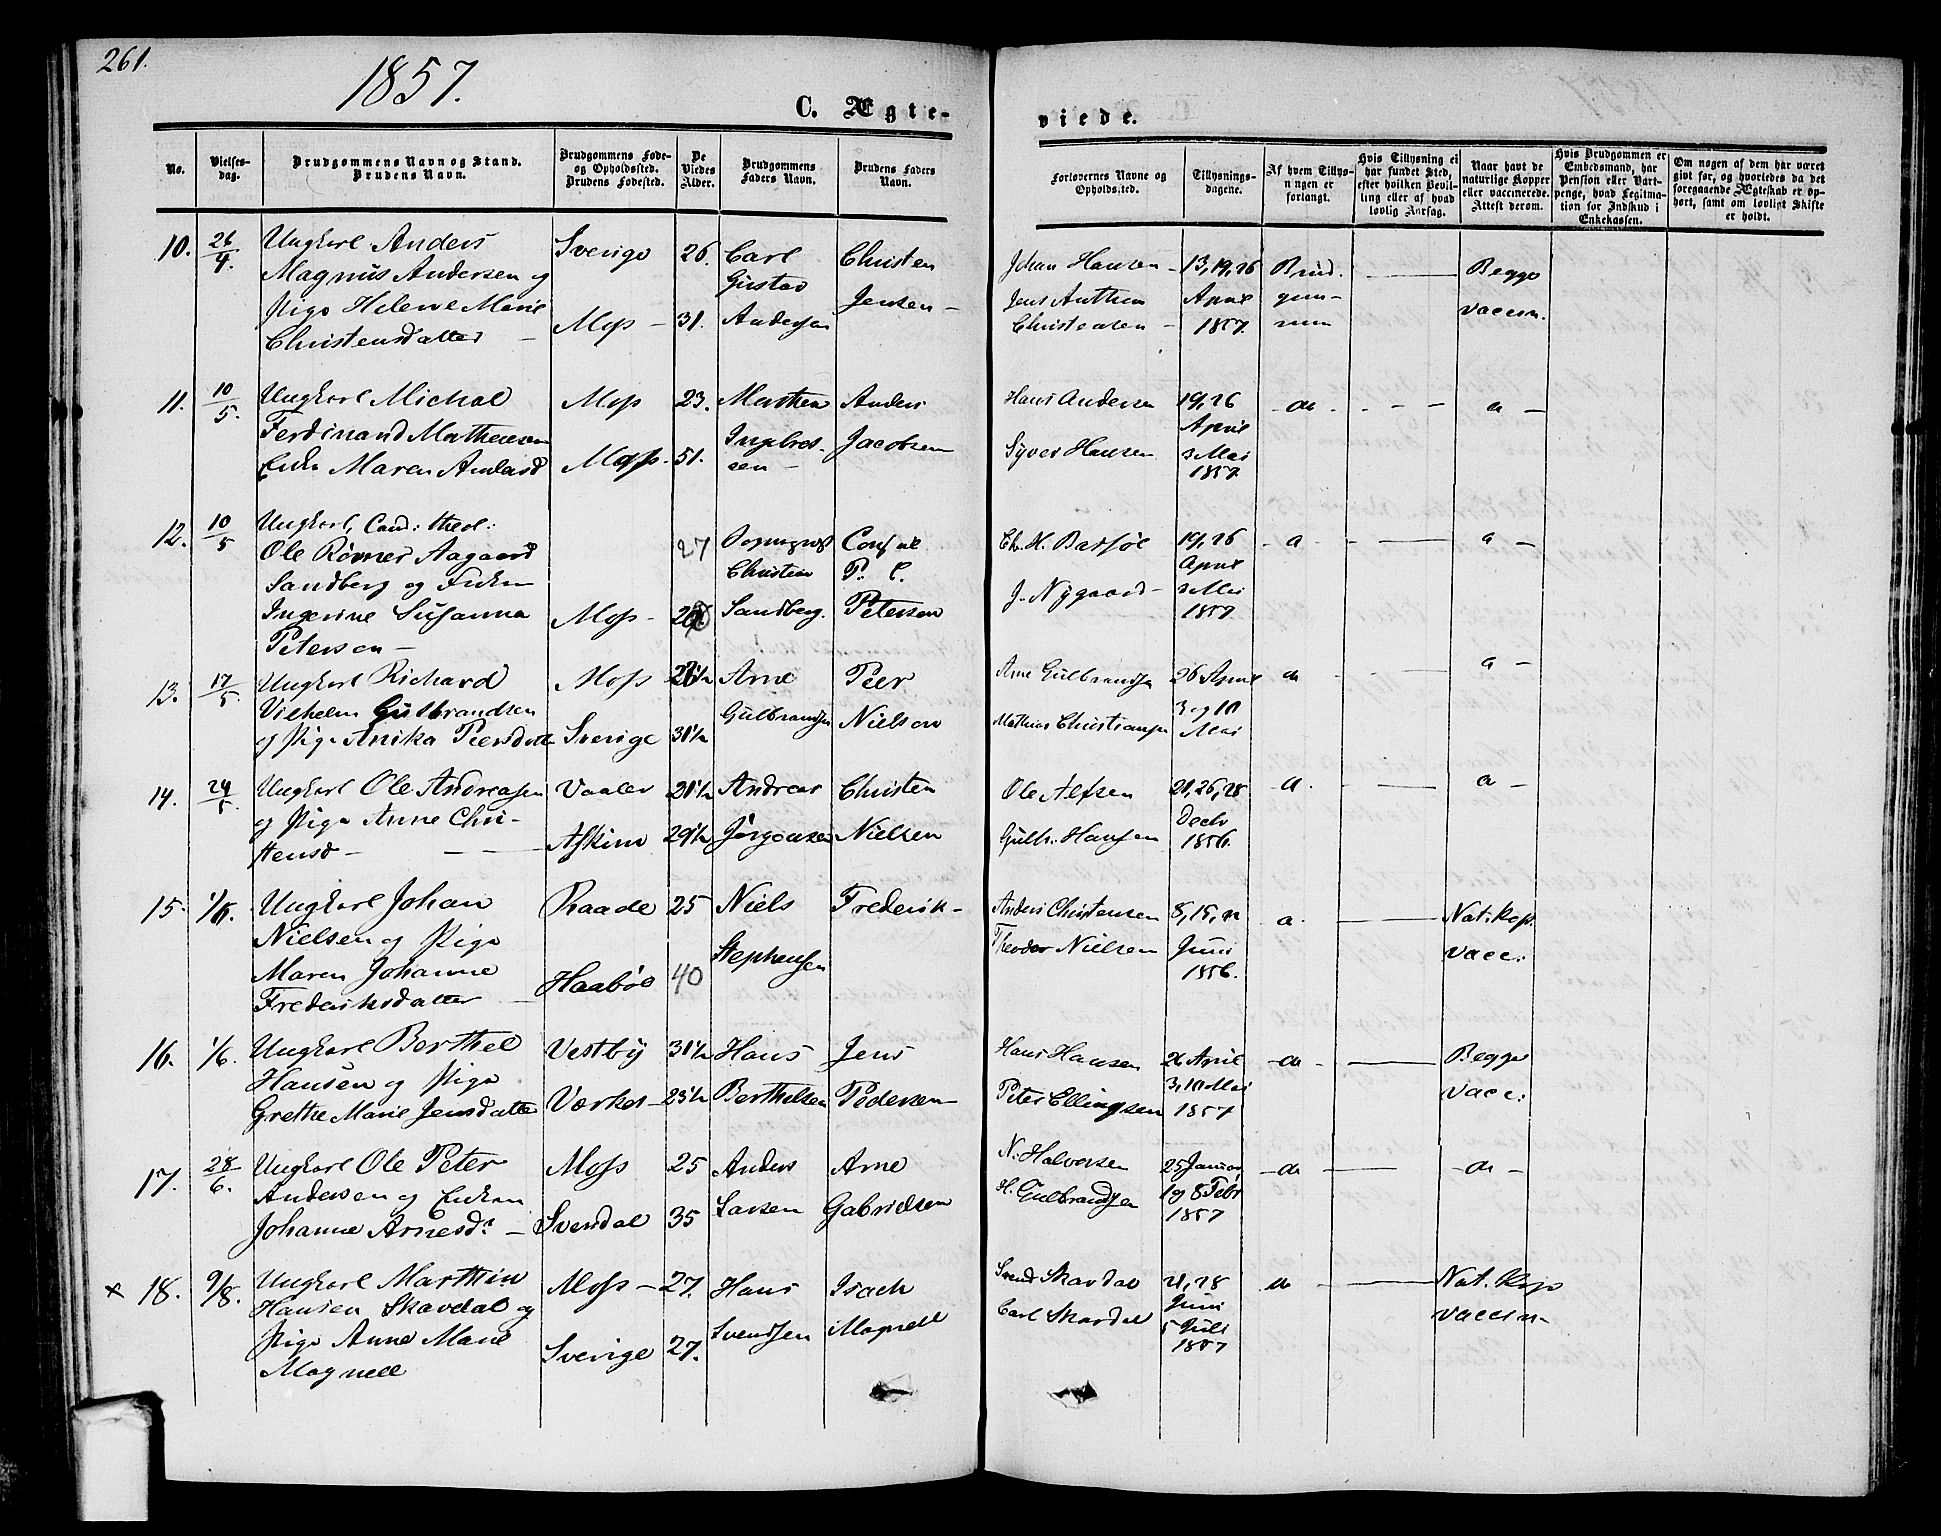 261.
1857.
C. Ægte-
viede.
No.
Vielses-
dag.
Brudgommens Navn og Stand.
Brudens Navn.
Brudgommens Føde-
og Opholdssted.
Brudens Fødested.
De
Viedes
Alder.
Brudgommens
Faders Navn.
Brudens Faders
Navn.
Forlovernes Navne og
Opholdssted.
Tillysnings-
dagene.
Af hvem Tillys-
ningen er
forlangt.
Hvis Tillysning ei
har fundet Sted,
efter hvilken Bevil-
ling eller af hvad
lovlig Aarsag.
Naar havt de
naturlige Kopper
eller vaccinerede.
Attest derom.
Hvis Brudgommen er
Embedsmand, har
Pension eller Vart-
penge, hvad Legitima-
tion for Indskud i
Enkekassen.
Om nogen af dem har været
gift før, og hvorledes da det
foregaaende Ægteskab er op-
hørt, samt om lovligt Skifte
er holdt.
10. 26/4. Ungkarl Anders Sverige 26. Carl Christen Johan Hansen - 13, 19, 26 Brud- Begge
Magnus Andersen og Gustav Jensen - Jens Anthon April gom- vaccin.
Pige Helene Marie Moss - 31. Andersen Christensen - 1857. men
Christensdatter -
11. 10/5. Ungkarl Michal Moss 23. Marthen Anders Hans Andersen 19, 26 - do - - - - a -
Ferdinand Mathensen Ingebret- Jacobsen April
Enke Maren Andersd Moss - 51. sen - Syver Hansen 3 Mai
1857
12. 10/5 Ungkarl, Cand: theol: 27 Sogneprest Consul Ch. H. Basføe 19, 26 - a - - a -
Ole Rømer Aagaard Christian P. C. April
Sandberg og Frøken Sandberg. Petersen J. Nygaard - 3 Mai
Ingerine Susanna Moss - 1857
Petersen -
13. 17/5 Ungkarl Richard Moss Arne Peer Arne Gulbrandsen 26 April do - - a -
Vilhelm Gulbrandsen Gulbrandsen Nielsen 3 og 10
og Pige Anika Peersdatt Sverige 31½ Mathias Christiansen Mai
14. 24/5 Ungkarl Ole Andreasen Vaaler 21½ Andreas Christen Ole Alfsen 21, 26, 28 - a - - a -
og Pige Anne Chri- Decbr
stensd - - - Askim 29½ Jørgensen Nielsen Gulb. Hansen 1856.
15. 1/6. Ungkarl Johan Raade 25 Niels Frederik - Anders Christensen 8, 15, 22 a. Nat. Kop.
Nielsen og Pige Stephensen Theodor Nielsen Juni vacc.
Maren Johanne Haabøl 40 1856.
Frederiksdatter -
16. 1/6. Ungkarl Berthel Vestby 31½ Hans Jens Hans Hansen 26 April - do - Begge
Hansen og Pige 3, 10 Mai vacc.
Grethe Marie Jensdatter Værket - 25½ Berthelsen Pedersen - Peter Ellingsen 1857
17. 28/6. Ungkarl Ole Peter Moss 25 Anders Arne N. Halvorsen 25 Januar, - do - - do -
Andersen og Enken 1 og 8 Febr
Johanne Arnesdr - Svendal 35 Larsen Gabrielsen H. Gulbrandsen 1857
x 18. 9/8. Ungkarl Marthin Moss - 27. Hans Isach Svend Skavdal 21, 28 do - Nat. Kop.
Hansen Skavdal og Juni vaccin -
Pige Anne Marie Sverige 27. Svendsen Magnell Carl Skavdal 5 Juli
Magnell 1857